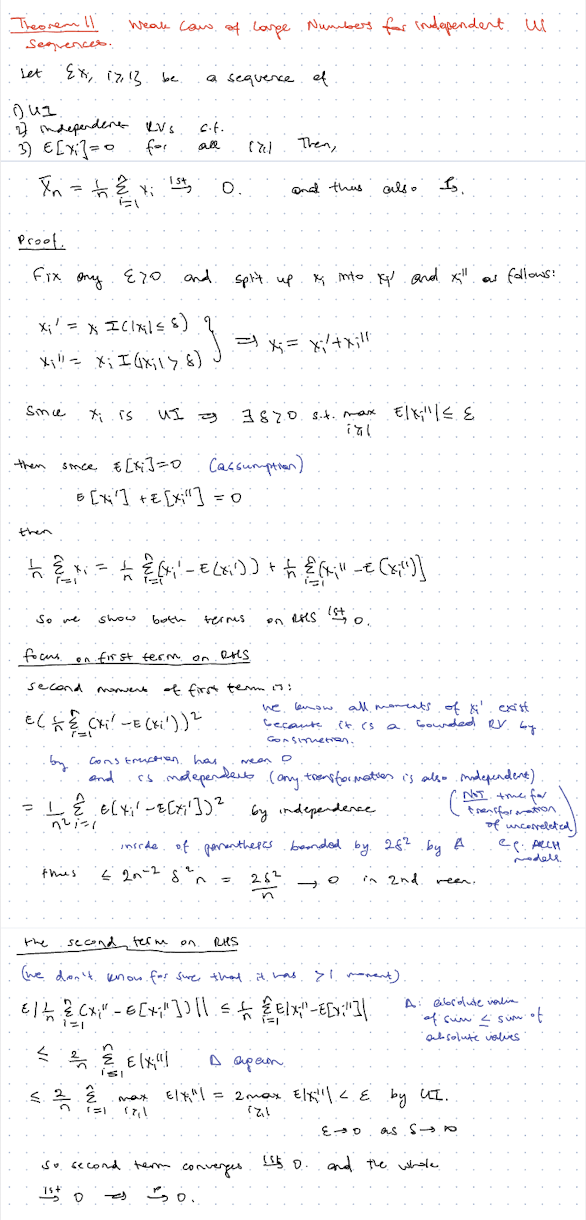 Theorem 11 Weak Law of Large Numbers for independent UI
Sequences.
Let {Xi, i≥1} be a sequence of
1) UI
2) independent RVs s.t.
3) E[Xi]=0 for all i≥1 Then,
X̄n = 1/n Σ_{i=1}^n Xi →^{1st} 0. and thus also →^p.
Proof.
Fix any ε>0 and split up Xi into Xi' and Xi'' as follows:
Xi' = Xi I(|Xi| ≤ δ)
Xi'' = Xi I(|Xi| > δ) } ⇒ Xi = Xi' + Xi''
Since Xi is UI ⇒ ∃ δ>0 s.t. max_{i≥1} E|Xi''| ≤ ε
then since E[Xi]=0 (assumption)
E[Xi'] + E[Xi''] = 0
then
1/n Σ_{i=1}^n Xi = 1/n Σ_{i=1}^n (Xi' - E(Xi')) + 1/n Σ_{i=1}^n (Xi'' - E(Xi'')]
So we show both terms on RHS →^{1st} 0.
focus on first term on RHS
second moment of first term is:
E( 1/n Σ_{i=1}^n (Xi' - E(Xi'))² we know all moments of Xi' exist
because it is a bounded RV by
construction.
by construction has mean 0
and is independent (any transformation is also independent)
= 1/n² Σ_{i=1}^n E(Xi' - E[Xi'])² by independence
(NOT true for
transformation
of uncorrelated)
inside of parentheses bounded by 2δ² by Δ e.g. ARCH
models.
thus ≤ 2n⁻² δ² n = 2δ²/n → 0 in 2nd mean.
the second term on RHS
(we don't know for sure that it has >1 moment)
E| 1/n Σ_{i=1}^n (Xi'' - E[Xi'']) || ≤ 1/n Σ_{i=1}^n E|Xi'' - E[Xi'']|
Δ: absolute value
of sum ≤ sum of
absolute values
≤ 2/n Σ_{i=1}^n E|Xi''| Δ again
≤ 2/n Σ_{i=1}^n max_{i≥1} E|Xi''| = 2 max_{i≥1} E|Xi''| < ε by UI.
ε→0 as δ→∞
so second term converges →^{1st} 0. and the whole
→^{1st} 0 ⇒ →^p 0.